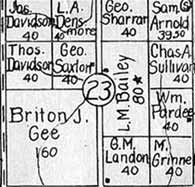 Jas.
Davidson
40
L.A.
Dens-
more
40
Geo.
Sharrar
40
Sam G
Arnold
39.50
Thos.
Davidson
40
Geo.
Saxton
40
L.M. Bailey
80
Chas. A
Sullivan
40
23
Wm.
Pardee
40
Briton J.
Gee
160
G.M.
Landon
40
M.
Grinnel
40